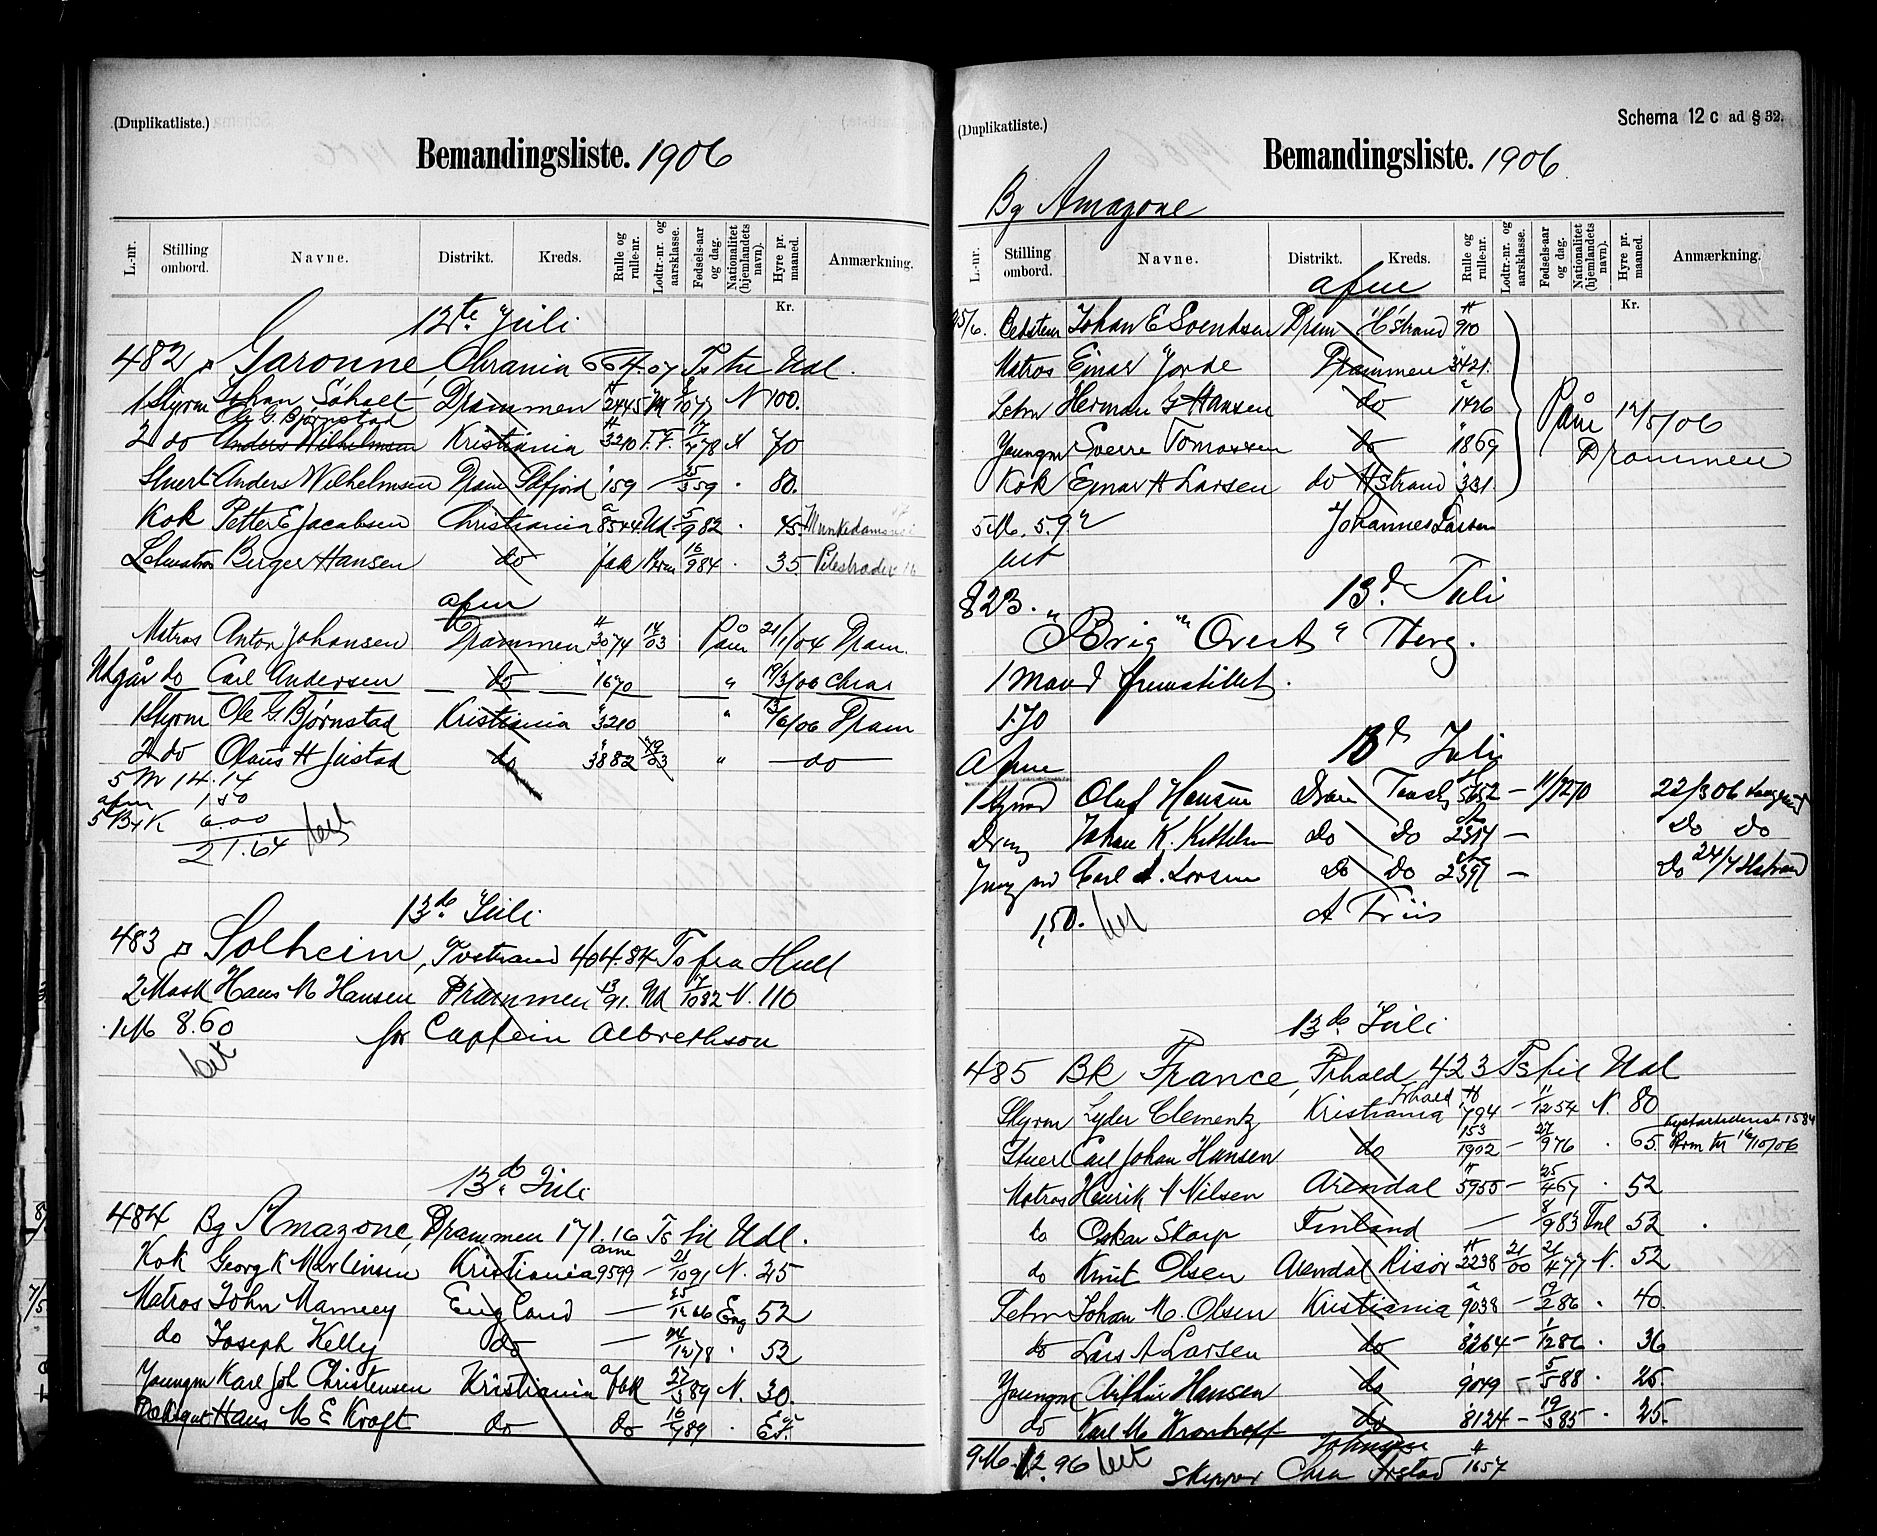 (Duplikatliste.)
Bemandingsliste. 1906
L.-nr. Stilling ombord. Navne. Distrikt. Kreds. Rulle og rulle-nr. Lodtr.-nr. og aarsklasse. Fødsels-aar og dag. Nationalitet (hjemlandets navn). Hyre pr. maaned. Anmærkning.
Kr.
12te Juli
482 Garonne, Chrania 664.07 Ts til Udl.
1 Styrm Johan Sohaet Drammen 2445 N 100.
Ole G. Bjørnstad
2 do Anders Wilhelmsen Kristiania 3210 F.F. 17/278 N 70
Stuert Anders Wilhelmsen Dram 159 25/359 . 80.
Kok Petter E Jacobsen Christiania 8544 Ud 5/982 . 45. Munkedams
Letmatros Birger Hansen do fak 16/984 . 35. Pilestrædet 16
afm
Matros Anton Johansen Drammen 3074 14/03 Påm 21/1/04 Dram.
Udgår do Carl Andersen do 1670 " 19/3/06 Chra
1 Styrm Ole G. Bjørnstad Kristiania 3210 " 13/6/06 Dram
2 do Olaus H Justad do 3882 19/03 " do
5 M 14.14
afm 1.50
5 B & K 6.00
21.64 bet
13de Juli
483 Solheim, Tvestrand 404.84 Ts fra Hull
2 Mask Hans M Hansen Drammen 13/91. Ud 17/1082 N. 110
1 M 8.60 for Captein Albrethson
bet
13d Juli
484 Bg Amazone, Drammen 171.16 Ts til Udl.
Kok Georg K Martinsen Kristiania anm 9599 — 21/1091 N. 25
Matros John Mamsey England — 25/1266 Eng 52
do Joseph Kelly do — 24/1278 . 52
Youngm Karl Joh Christensen Kristiania fak 27/389 N. 30.
Dæksgut Hans M E Kraft do do 16/789 .
(Duplikatliste.)
Schema 12 c ad § 32.
Bemandingsliste. 1906
Bg Amazone
L.-nr. Stilling ombord. Navne. Distrikt. Kreds. Rulle og rulle-nr. Lodtr.-nr. og aarsklasse. Fødsels-aar og dag. Nationalitet (hjemlandets navn). Hyre pr. maaned. Anmærkning.
afm
Kr.
25/6. Bedstem Johan E Svendsen Dram Hstrand 910
Matros Einar Jorde Drammen 3421
Letm Herman G Hansen do 1426
Påm 12/5/06
Youngm Sverre Tomassen do 1869
Drammen
Kok Ejnar H Larsen do Hstrand 331
5 M. 5.92 Johannes Larsen
bet
13d. Juli
823. "Brig" Orest Berg.
1 Mand fremstillet.
1.70
13d Juli
Afm
Styrmd Oluf Hansen Dram Tønsb 5652 — 11/1270 22/3 06 Langesund
Johan K. Kittelsen do do 2354 — do do
Jungmd Carl A. Larsen do do 2397 — do 24/4 Hstrand
1,50. bet A Friis
13de Juli
485 Bk France, Frhald, 423 Ts til Udl
Styrm Lyder Clementz Kristiania Frhald 794 — 11/1254 N. 80
Stuert Carl Johan Hansen do 153/1902 — 27/976 . 65. 16/10/06
Matros Henrik N Nilsen Arendal 5955 — 25/467 . 52
do Oskar Skarp Finland — 8/983 Fnl 52
do Knut Olsen Arendal Risør 2238 21/00 21/477 N. 52
Letm Johan M. Olsen Kristiania 9038 — 19/286 . 40.
do Lars A Larsen do 8264 — 1/1286 . 36
Youngm Arthur Hansen do 9049 — 5/588 . 25.
do Karl M Kronhoff do 8124 — 19/385 . 25.
9 M. 12.96 bet Skipper Chra Johnsen 1657